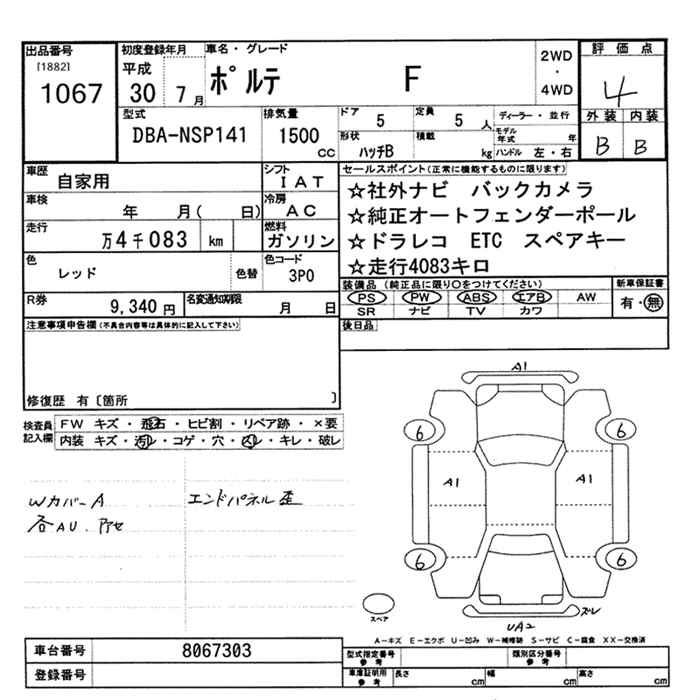 出品番号
[1882]
1067
初度登録年月
平成
30 7 月
車名・グレード
ポルテ F
2WD
・
4WD
評価点
4
外装 内装
B B
型式
DBA-NSP141
排気量
1500
cc
ドア
5
定員
5 人
ディーラー・並行
形状
ハッチB
積載
kg
モデル
年式 年
ハンドル 左・右
車歴
自家用
シフト
IAT
車検
年 月( 日)
冷房
AC
走行
万4千083 km
燃料
ガソリン
色
レッド
色替
色コード
3P0
R券
9,340 円
名変通知期限
月 日
セールスポイント(正常に機能するものに限ります)
☆社外ナビ バックカメラ
☆純正オートフェンダーポール
☆ドラレコ ETC スペアキー
☆走行4083キロ
装備品 (純正品に限り〇をつけてください)
PS PW ABS エアB AW
SR ナビ TV カワ
新車保証書
有・無
後日品
注意事項申告欄(不具合内容等は具体的に記入して下さい)
修復歴 有〔箇所 〕
検査員
記入欄
FW キズ・飛石・ヒビ割・リペア跡・×要
内装 キズ・汚レ・コゲ・穴・スレ・キレ・破レ
Wカバー A
各AU.
エンドパネル歪
A1
6 6
A1 A1
6 6
スペア
UA2
ズレ
A-キズ E-エクボ U-凹み W-補修跡 S-サビ C-腐食 XX-交換済
車台番号
8067303
登録番号
型式指定番号
参考
類別区分番号
参考
車庫証明用
参考
長さ cm
幅 cm
高さ cm